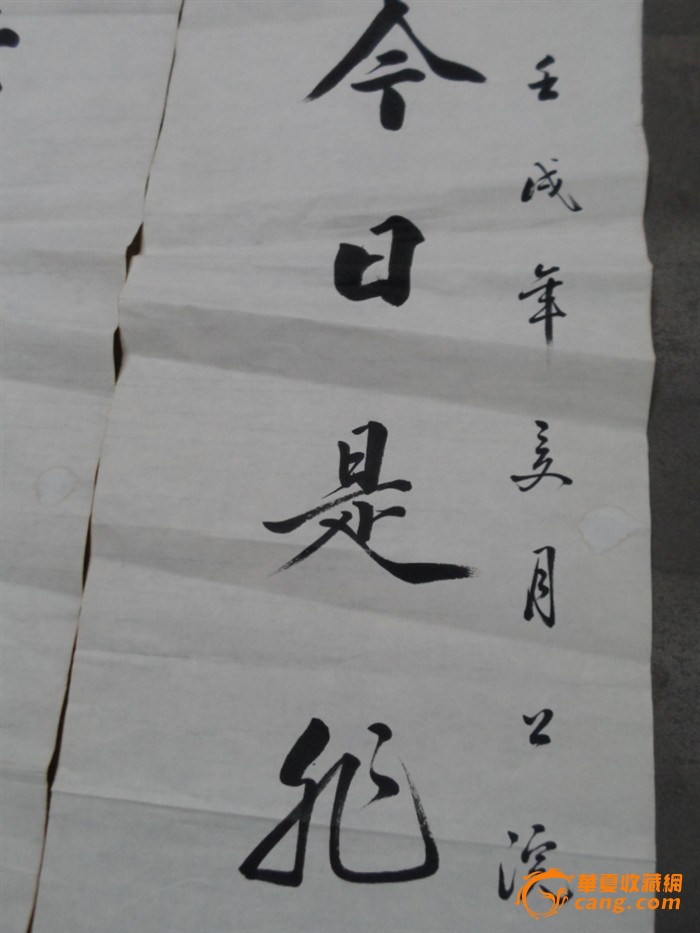 壬戌年亥月
今日是非
華夏收藏網
cang.com